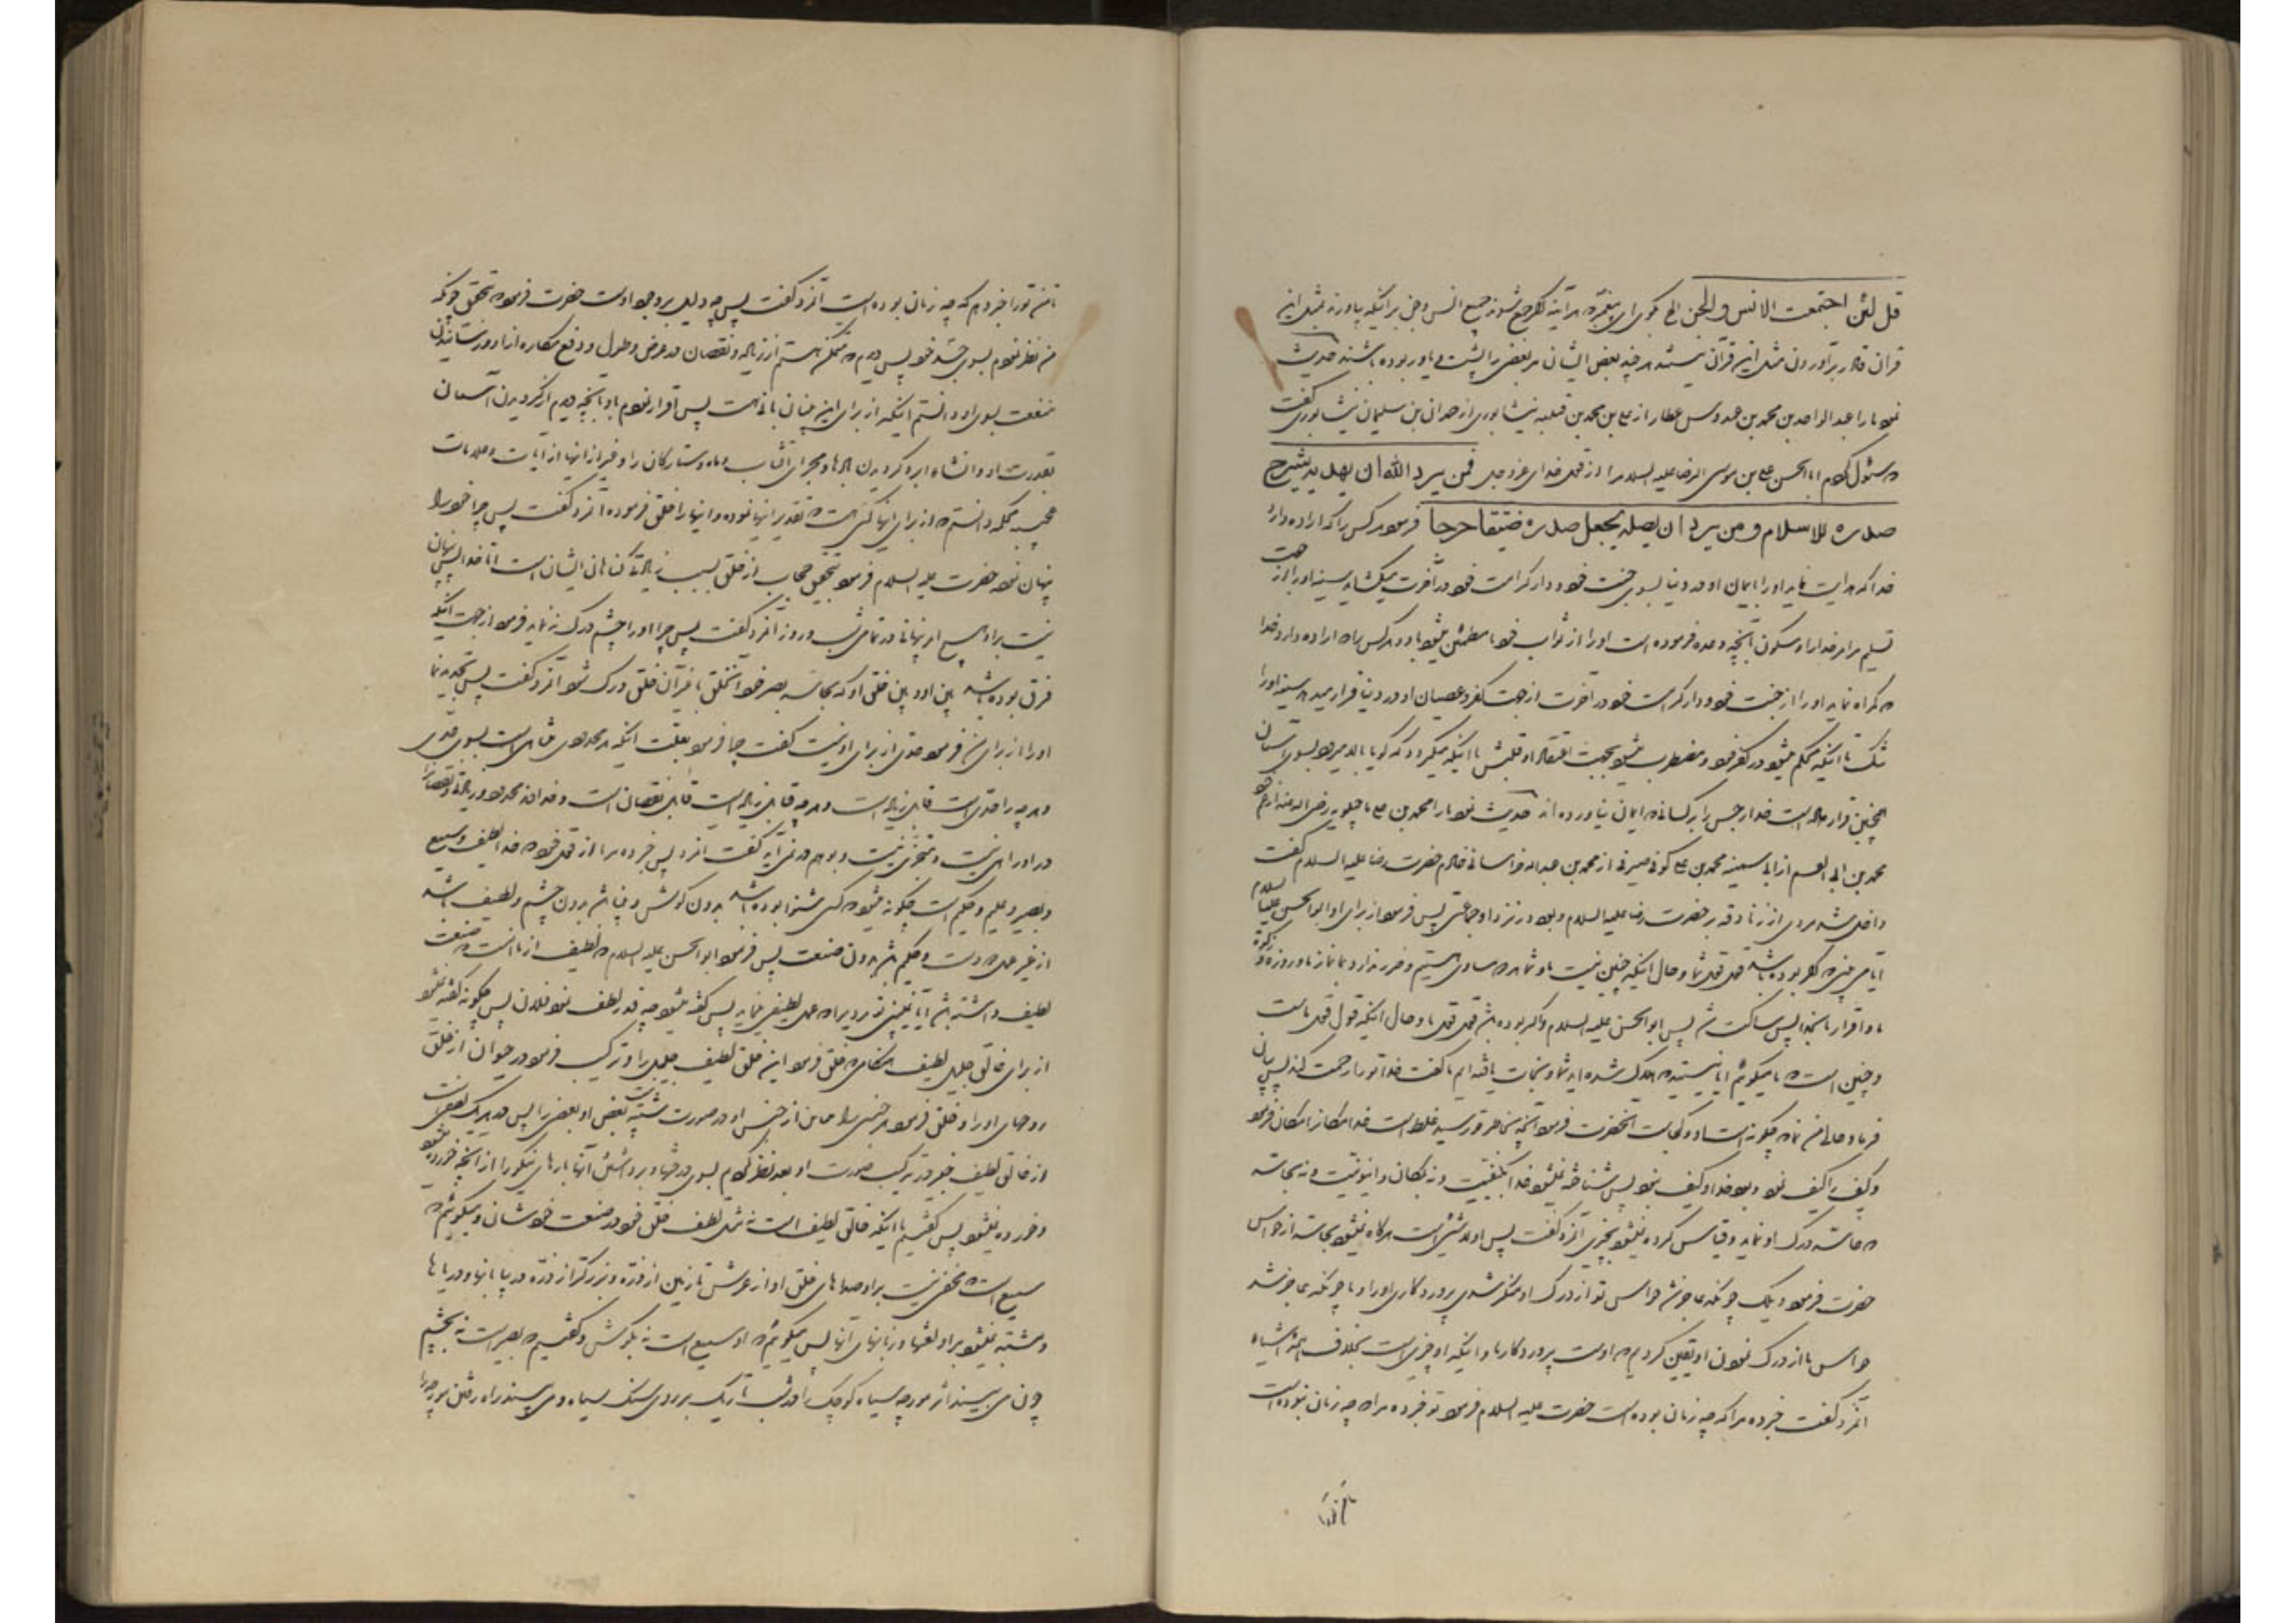 قل لئن اجتمعت الانس والجن الخ بگوی ای پیغمبر که هرآینه اگر جمع شوند جمیع انس و جن بر اینکه بیاورند بمثل این
قران قادر برآوردن مثل این قرآن نیستند هرچند بعض ایشان مر بعض را پشت و یاور بوده باشند حدیث
نمود ما را عبدالواحد بن محمد بن عبدوس عطار از علی بن محمد بن قتیبه نیشابوری از حمدان بن سلیمان نیشابوری گفت
که سئوال کردم اباالحسن علی بن موسی الرضا علیه السلام را از قول خدای عزوجل فمن یرد الله ان یهدیه یشرح
صدره للاسلام و من یرد ان یضله یجعل صدره ضیقا حرجا فرمود هرکس را که اراده دارد
خدا که هدایت نماید او را بایمان او در دنیا بسوی جنت خود و دار کرامت خود در آخرت میگشاید سینه او را از جهت
تسلیم مر امر خدا را و سکون بآنچه وعده فرموده است او را از ثواب خود تا مطمئن میشود باو و هرکس را که اراده دارد خدا
که گمراه نماید او را از جنت خود و دار کرامت خود در آخرت از جهت کفر و عصیان او در دنیا قرار میدهد سینه او را
تنگ تا اینکه محکم میشود در کفر خود و مضطرب میشود بجهت اعتقاد او قلبش تا اینکه میگردد که گویا بالا میرود بسوی آسمان
همچنین قرار داده است خدا رجس را بر کسانی که ایمان نیاورده اند حدیث نمود ما را محمد بن علی ماجیلویه رضی الله عنه از عم خود
محمد بن ابی القسم از ابی سمینه محمد بن علی کوفی صیرفی از محمد بن عبدالله خراسانی خادم حضرت رضا علیه السلام گفت
داخل شد مردی از زنادقه بر حضرت رضا علیه السلام و بود در نزد او جماعتی پس فرمود از برای او ابوالحسن علیه السلام
آیا می بینی که اگر بوده باشد قول قول شما و حال اینکه چنین نیست ما و شما مساوی هستیم و ضرر ندارد ما را نماز ما و روزه و زکوة
ما و اقرار ما بخدا پس ساکت شد پس ابوالحسن علیه السلام و اگر بوده باشد قول قول ما و حال اینکه قول قول ماست
و چنین است که ما میگوئیم آیا نیستید که هلاک شده اید شما و نجات یافته ایم ما گفت خدا تو را رحمت کند پس بیان
فرما و حالی من نما که چگونه است او و در کجاست آنحضرت فرمود آنچه بخاطر تو رسید غلط است خدا مکان را مکان فرمود
و کیف را کیف نمود و بود خدا و کیف نبود پس شناخته نمیشود خدا بکیفیت و نه بمکان و اینونیت و نه بحاسه
که حاسه درک او نماید و قیاس کرده نمیشود بچیزی آنمرد گفت پس او لا شیئ است هرگاه نمیشود بحاسه از حواس
حضرت فرمود ویلک چونکه عاجز شد حواس تو از درک او منکر شدی پروردگاری او را و ما چونکه عاجز شد
حواس ما از درک نمودن او یقین کردیم که اوست پروردگار ما و اینکه او چیزیست بخلاف همه اشیاء
آنمرد گفت خبر ده مرا که چه زمان بوده است حضرت علیه السلام فرمود تو خبر ده مرا که چه زمان نبوده است
تا من تو را خبر دهم که چه زمان بوده است آنمرد گفت پس چه دلیل بر وجود اوست حضرت فرمود بتحقیق چونکه
من نظر نمودم بسوی جسد خود پس دیدم که ممکن نیستم از زیاد و نقصان در عرض و طول و دفع مکاره از او و رسانیدن
منفعت بسوی او دانستم اینکه از برای این بنیان بانی هست پس اقرار نمودم باو با آنچه دیدم از گردیدن آسمان
بقدرت او و انشاء ابر و گردیدن بادها و مجرای آفتاب و ماه و ستارگان را و غیر از اینها از آیات و علامات
عجیبه محکمه دانستم که از برای اینها کسی هست که تقدیر اینها نموده و اینها را خلق فرموده آنمرد گفت پس چرا خود را
پنهان نمود حضرت علیه السلام فرمود بتحقیق حجاب از خلق بسبب زیادتی گناهان ایشان است اما خدا پس پنهان
نیست بر او هیچ امر پنهانی در تمامی شب و روز آنمرد گفت پس چرا او را چشم درک نه نماید فرمود از جهت اینکه
فرق بوده باشد بین او و بین خلق او که بحاسه بصر خود آنخلق یا غیر آن خلق درک شود آنمرد گفت پس تحدید نما
او را از برای من فرمود حدی از برای او نیست گفت چرا فرمود بعلت اینکه هر محدودی متناهی است بسوی حدی
و هر چه را حدی است قابل زیاد است و هر چه قابل زیاد است قابل نقصان است و خدا نه محدود و زیادتی و نقصان
در او راه نیست و متجزی نیست و بوهم در نمی آید گفت آنمرد پس خبر ده مرا از قول خود که خدا لطیف و سمیع
و بصیر و علیم و حکیم است چگونه میشود که کسی شنوا بوده باشد بدون گوش و بینا باشد بدون چشم و لطیف باشد
از غیر عمل دست و حکیم باشد بدون صنعت پس فرمود ابوالحسن علیه السلام که لطیف از ما آنست که صنعت
لطیف داشته باشد آیا نمی بینی تو مردیرا که عمل لطیفی نماید پس گفته میشود چه قدر لطف نمود فلان پس چگونه گفته نشود
از برای خالق جلیل لطیف هنگامی که خلق فرمود این خلق لطیف جلیل را و ترکیب فرمود در حیوان از خلق
روحهای او را و خلق فرمود هر جنسی را مباین از جنس او در صورت شبیه نیست بعض او بعض را پس در هریک لطفی است
از خالق لطیف خبیر در ترکیب صورت او بعد نظر کردم بسوی درختها و برداشتن آنها بارهای نیکو را از آنچه خورده میشود
و خورده نمیشود پس گفتیم با اینکه خالق لطیف است نه مثل لطف خلق خود در صنعت خودشان و میگوئیم که
سمیع است که مخفی نیست بر او صداهای خلق او از عرش تا زمین از ذره و بزرگتر از ذره در بیابانها و دریاها
و مشتبه نمیشود بر او لغتها و زبانهای آنها پس میگوئیم که او سمیع است نه بگوش و گفتیم که بصیر است نه بچشم
چون می بیند اثر مورچه سیاه کوچک را در شب تاریک بر روی سنگ سیاه و می بیند راه رفتن مورچه را